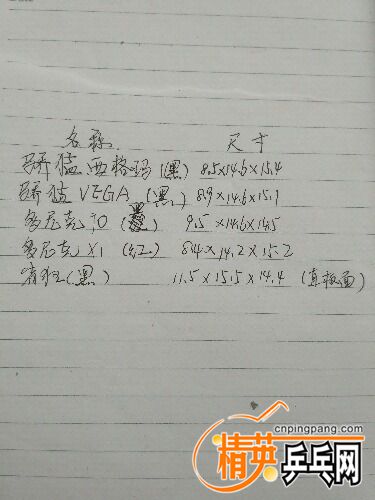 名称 尺寸
骄猛西格玛(黑) 8.5×14.6×15.4
骄猛VEGA(黑) 8.9×14.6×15.1
多尼克 (黑) 9.5×14.6×14.5
多尼克X1(红) 8.4×14.2×15.2
(黑) 11.5×15.5×14.4 (直板面)
cnpingpang.com
精英乒乓网